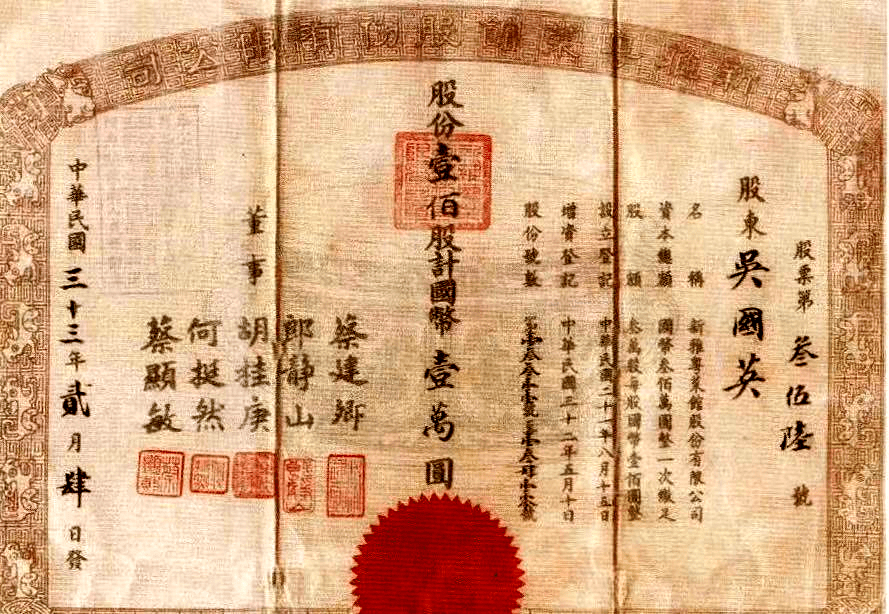 新雅粵菜館股份有限公司
股票第叁伍陸號
股東吳國英
名稱 新雅粵菜館股份有限公司
資本總額 國幣叁佰萬圓整一次繳足
股額 叁萬股每股國幣壹佰圓整
設立登記 中華民國二十一年八月十五日
增資登記 中華民國三十二年五月十日
股份號數
股份壹佰股計國幣壹萬圓
董事
蔡建卿
郎靜山
胡桂庚
何挺然
蔡顯敏
中華民國三十三年貳月肆日發